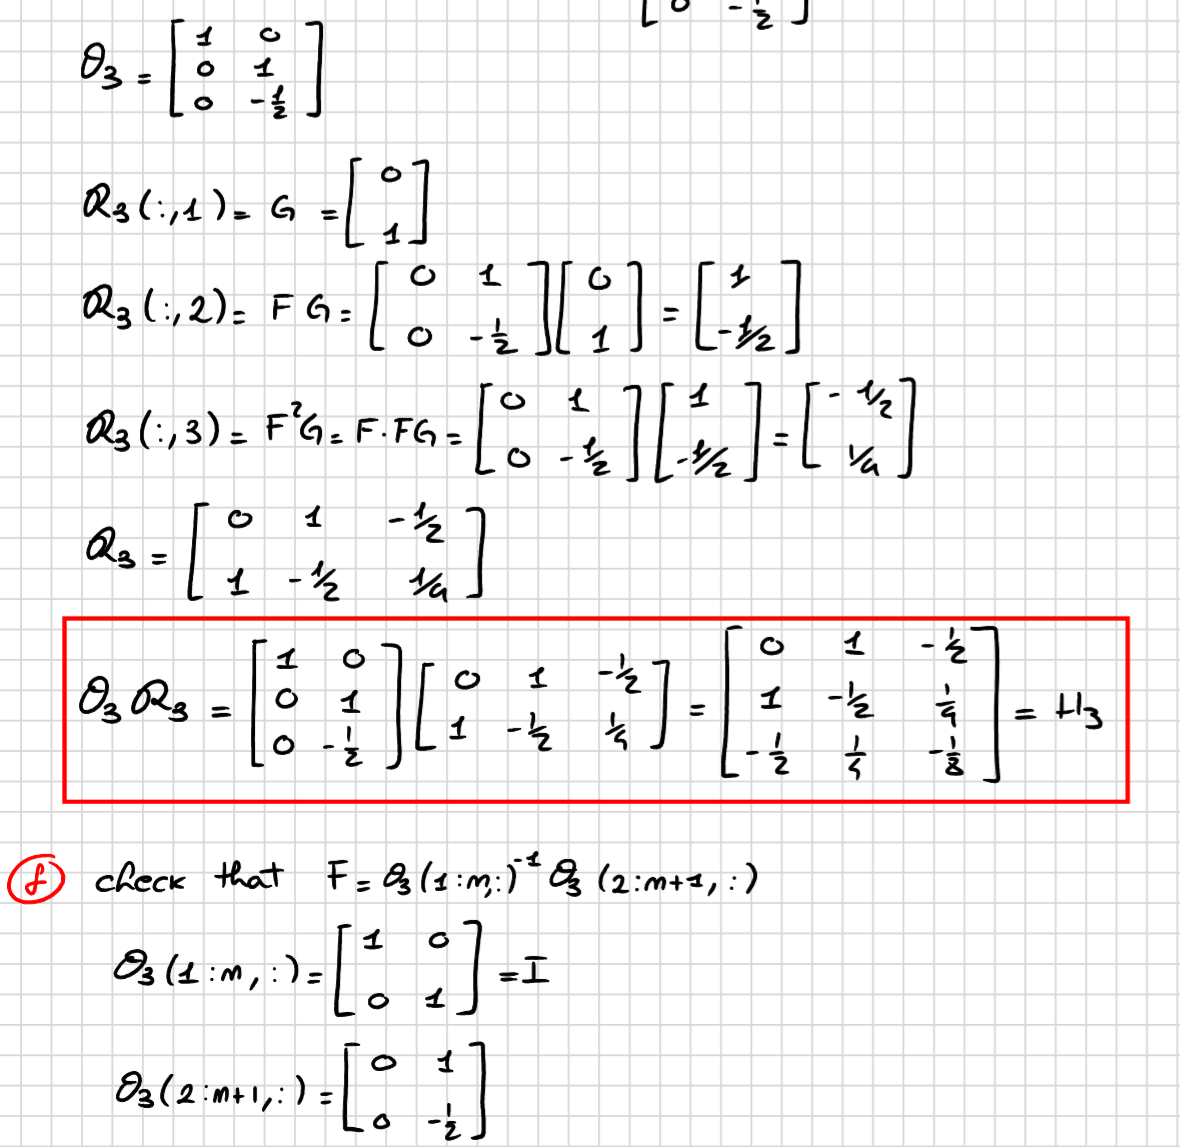 [ 0 -1/2 ]
𝒪₃ = [ 1 0 ; 0 1 ; 0 -1/2 ]
ℛ₃(:,1) = G = [ 0 ; 1 ]
ℛ₃(:,2) = F G = [ 0 1 ; 0 -1/2 ] [ 0 ; 1 ] = [ 1 ; -1/2 ]
ℛ₃(:,3) = F²G = F·FG = [ 0 1 ; 0 -1/2 ] [ 1 ; -1/2 ] = [ -1/2 ; 1/4 ]
ℛ₃ = [ 0 1 -1/2 ; 1 -1/2 1/4 ]
𝒪₃ ℛ₃ = [ 1 0 ; 0 1 ; 0 -1/2 ] [ 0 1 -1/2 ; 1 -1/2 1/4 ] = [ 0 1 -1/2 ; 1 -1/2 1/4 ; -1/2 1/4 -1/8 ] = H₃
f check that F = 𝒪₃(1:n,:)⁻¹ 𝒪₃(2:n+1,:)
𝒪₃(1:n,:) = [ 1 0 ; 0 1 ] = I
𝒪₃(2:n+1,:) = [ 0 1 ; 0 -1/2 ]